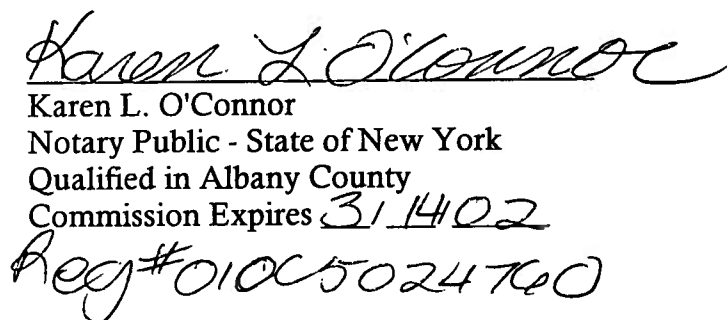 Karen L. O'Connor
Karen L. O'Connor
Notary Public - State of New York
Qualified in Albany County
Commission Expires 3/14/02
Reg# 01OC5024760